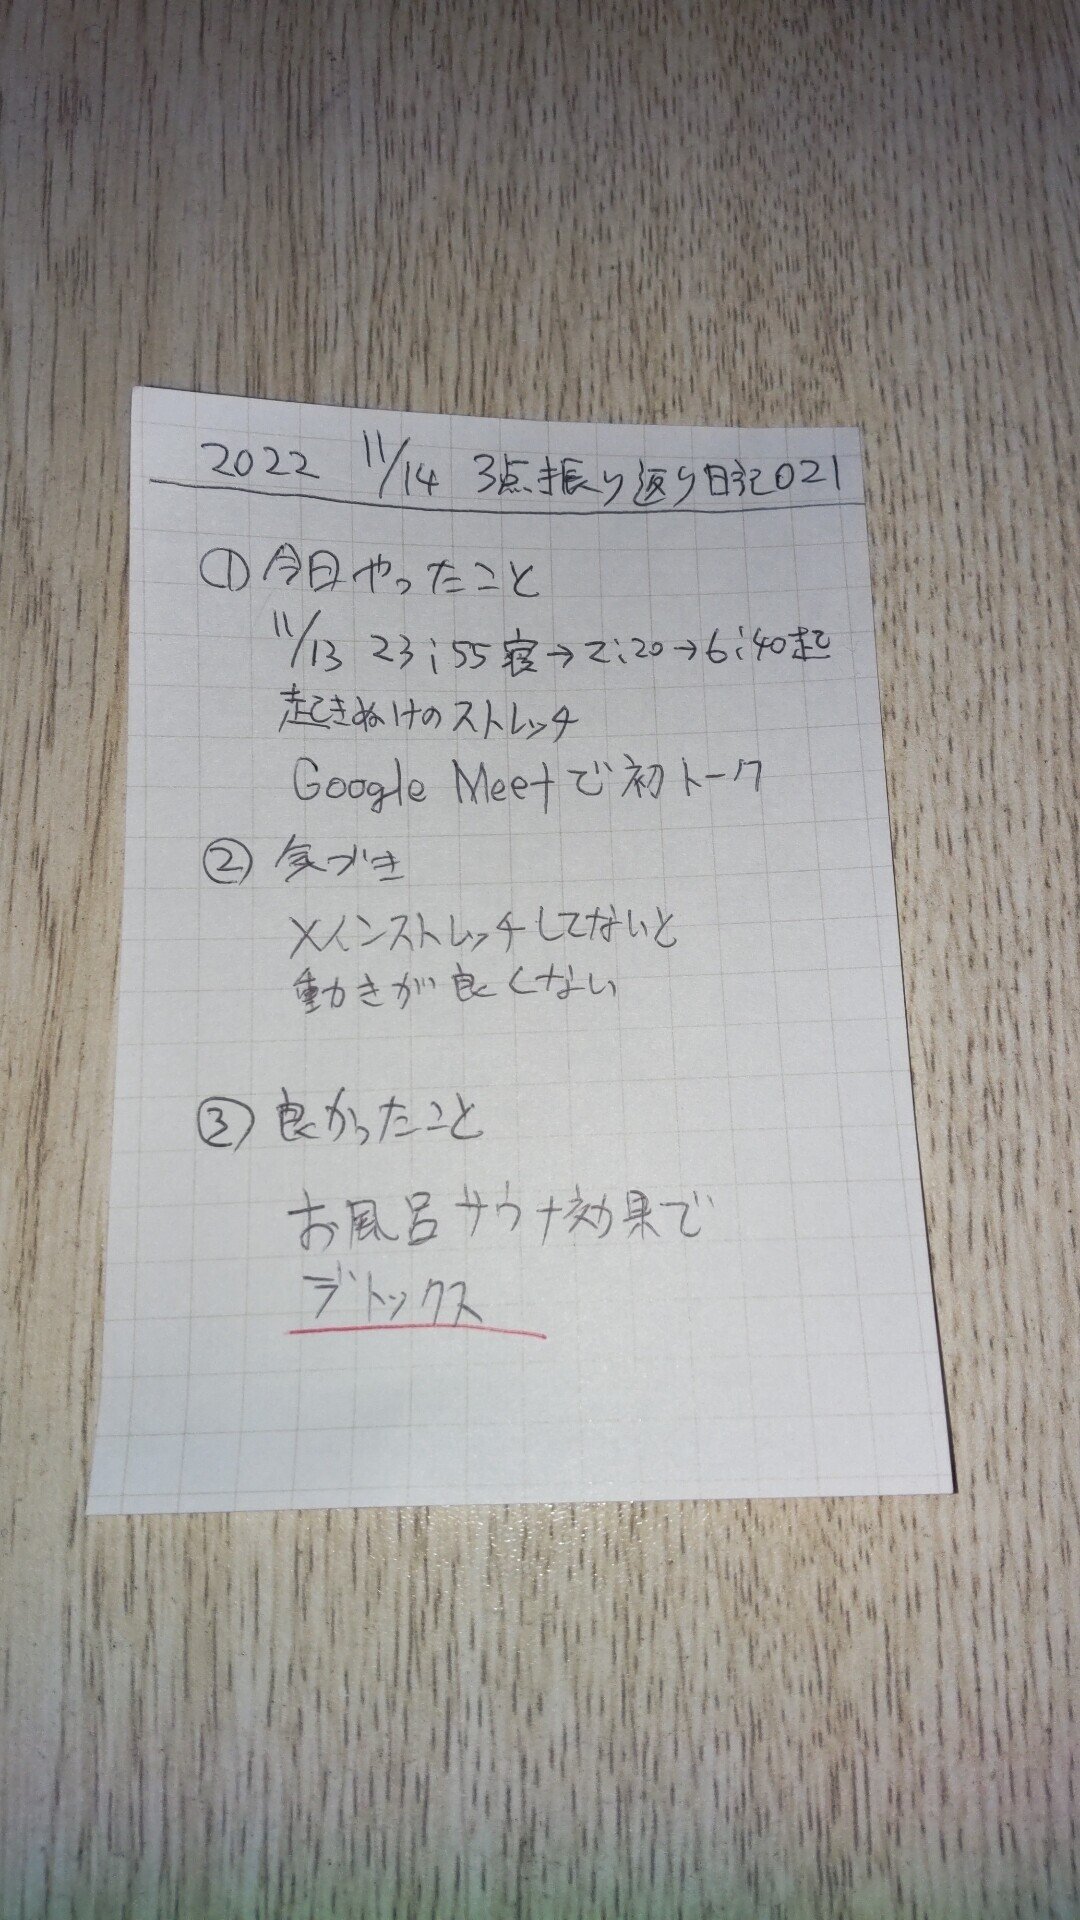 2022 11/14 3点振り返り日記021
① 今日やったこと
11/13 23:55寝→2:20→6:40起
起きぬけのストレッチ
Google Meetで初トーク
② 気づき
メインストレッチしてないと
動きが良くない
③ 良かったこと
お風呂サウナ効果で
デトックス